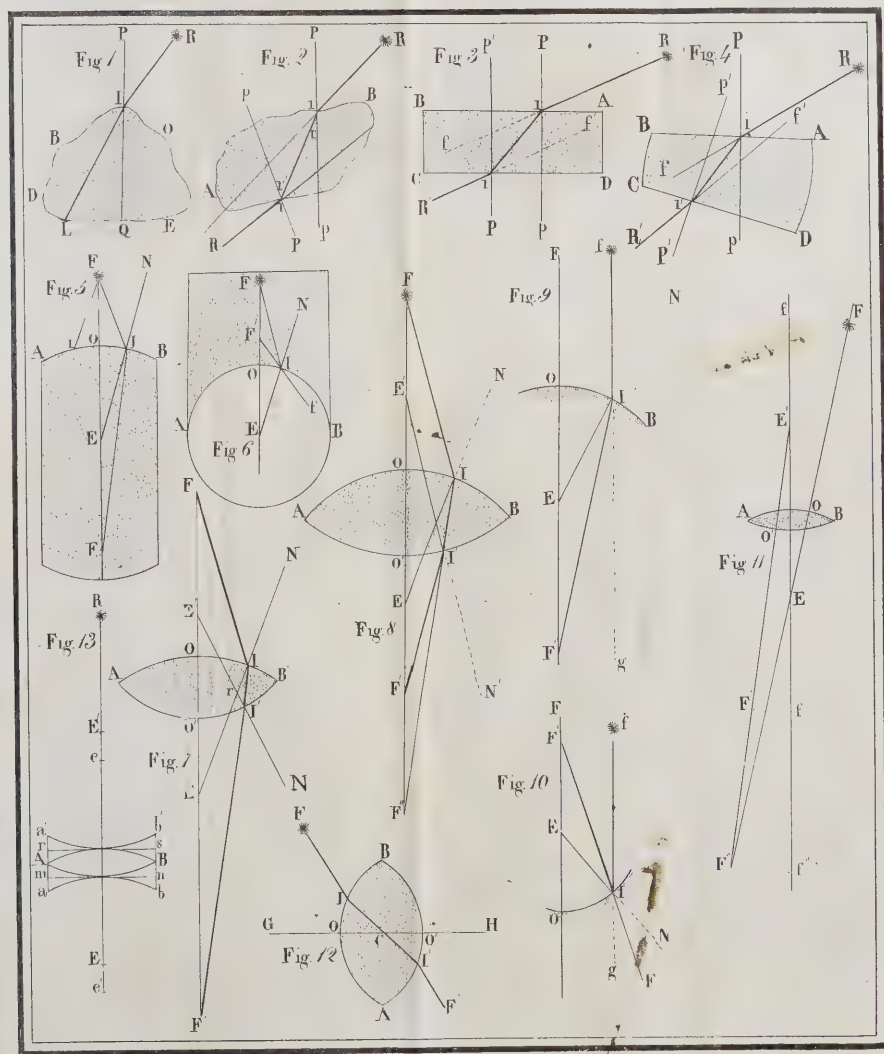 Fig 1
P
R
I
B
O
D
L
Q
E
Fig. 2
P
R
P
I
I
B
A
R
P
p
Fig 3
P'
P
R
B
I
A
f
f'
C
I
D
R
P
p
Fig. 4
P
R
P'
I
f'
B
A
f
C
I'
R'
D
P'
p
Fig. 5
F
N
A
I
O
I
B
E
F'
Fig 6
F
N
F
O
I
f
A
E
B
Fig. 7
F
N
E'
O
A
I
B
r
I'
O'
E
N
F'
Fig. 8
F
N
E'
O
I
A
B
O'
I
E
F'
N'
F''
Fig. 9
F
f
N
O
I
B
E
F'
g
Fig. 10
F
f
F'
E
O
I
N
g
F
Fig. 11
f
F
E'
A
O
B
O
E
F'
f
F''
f''
Fig. 12
F
B
I
G
O
C
O'
H
I'
A
F'
Fig. 13
R
E'
e
a'
b'
r
s
A
B
m
n
a
b
E
e'